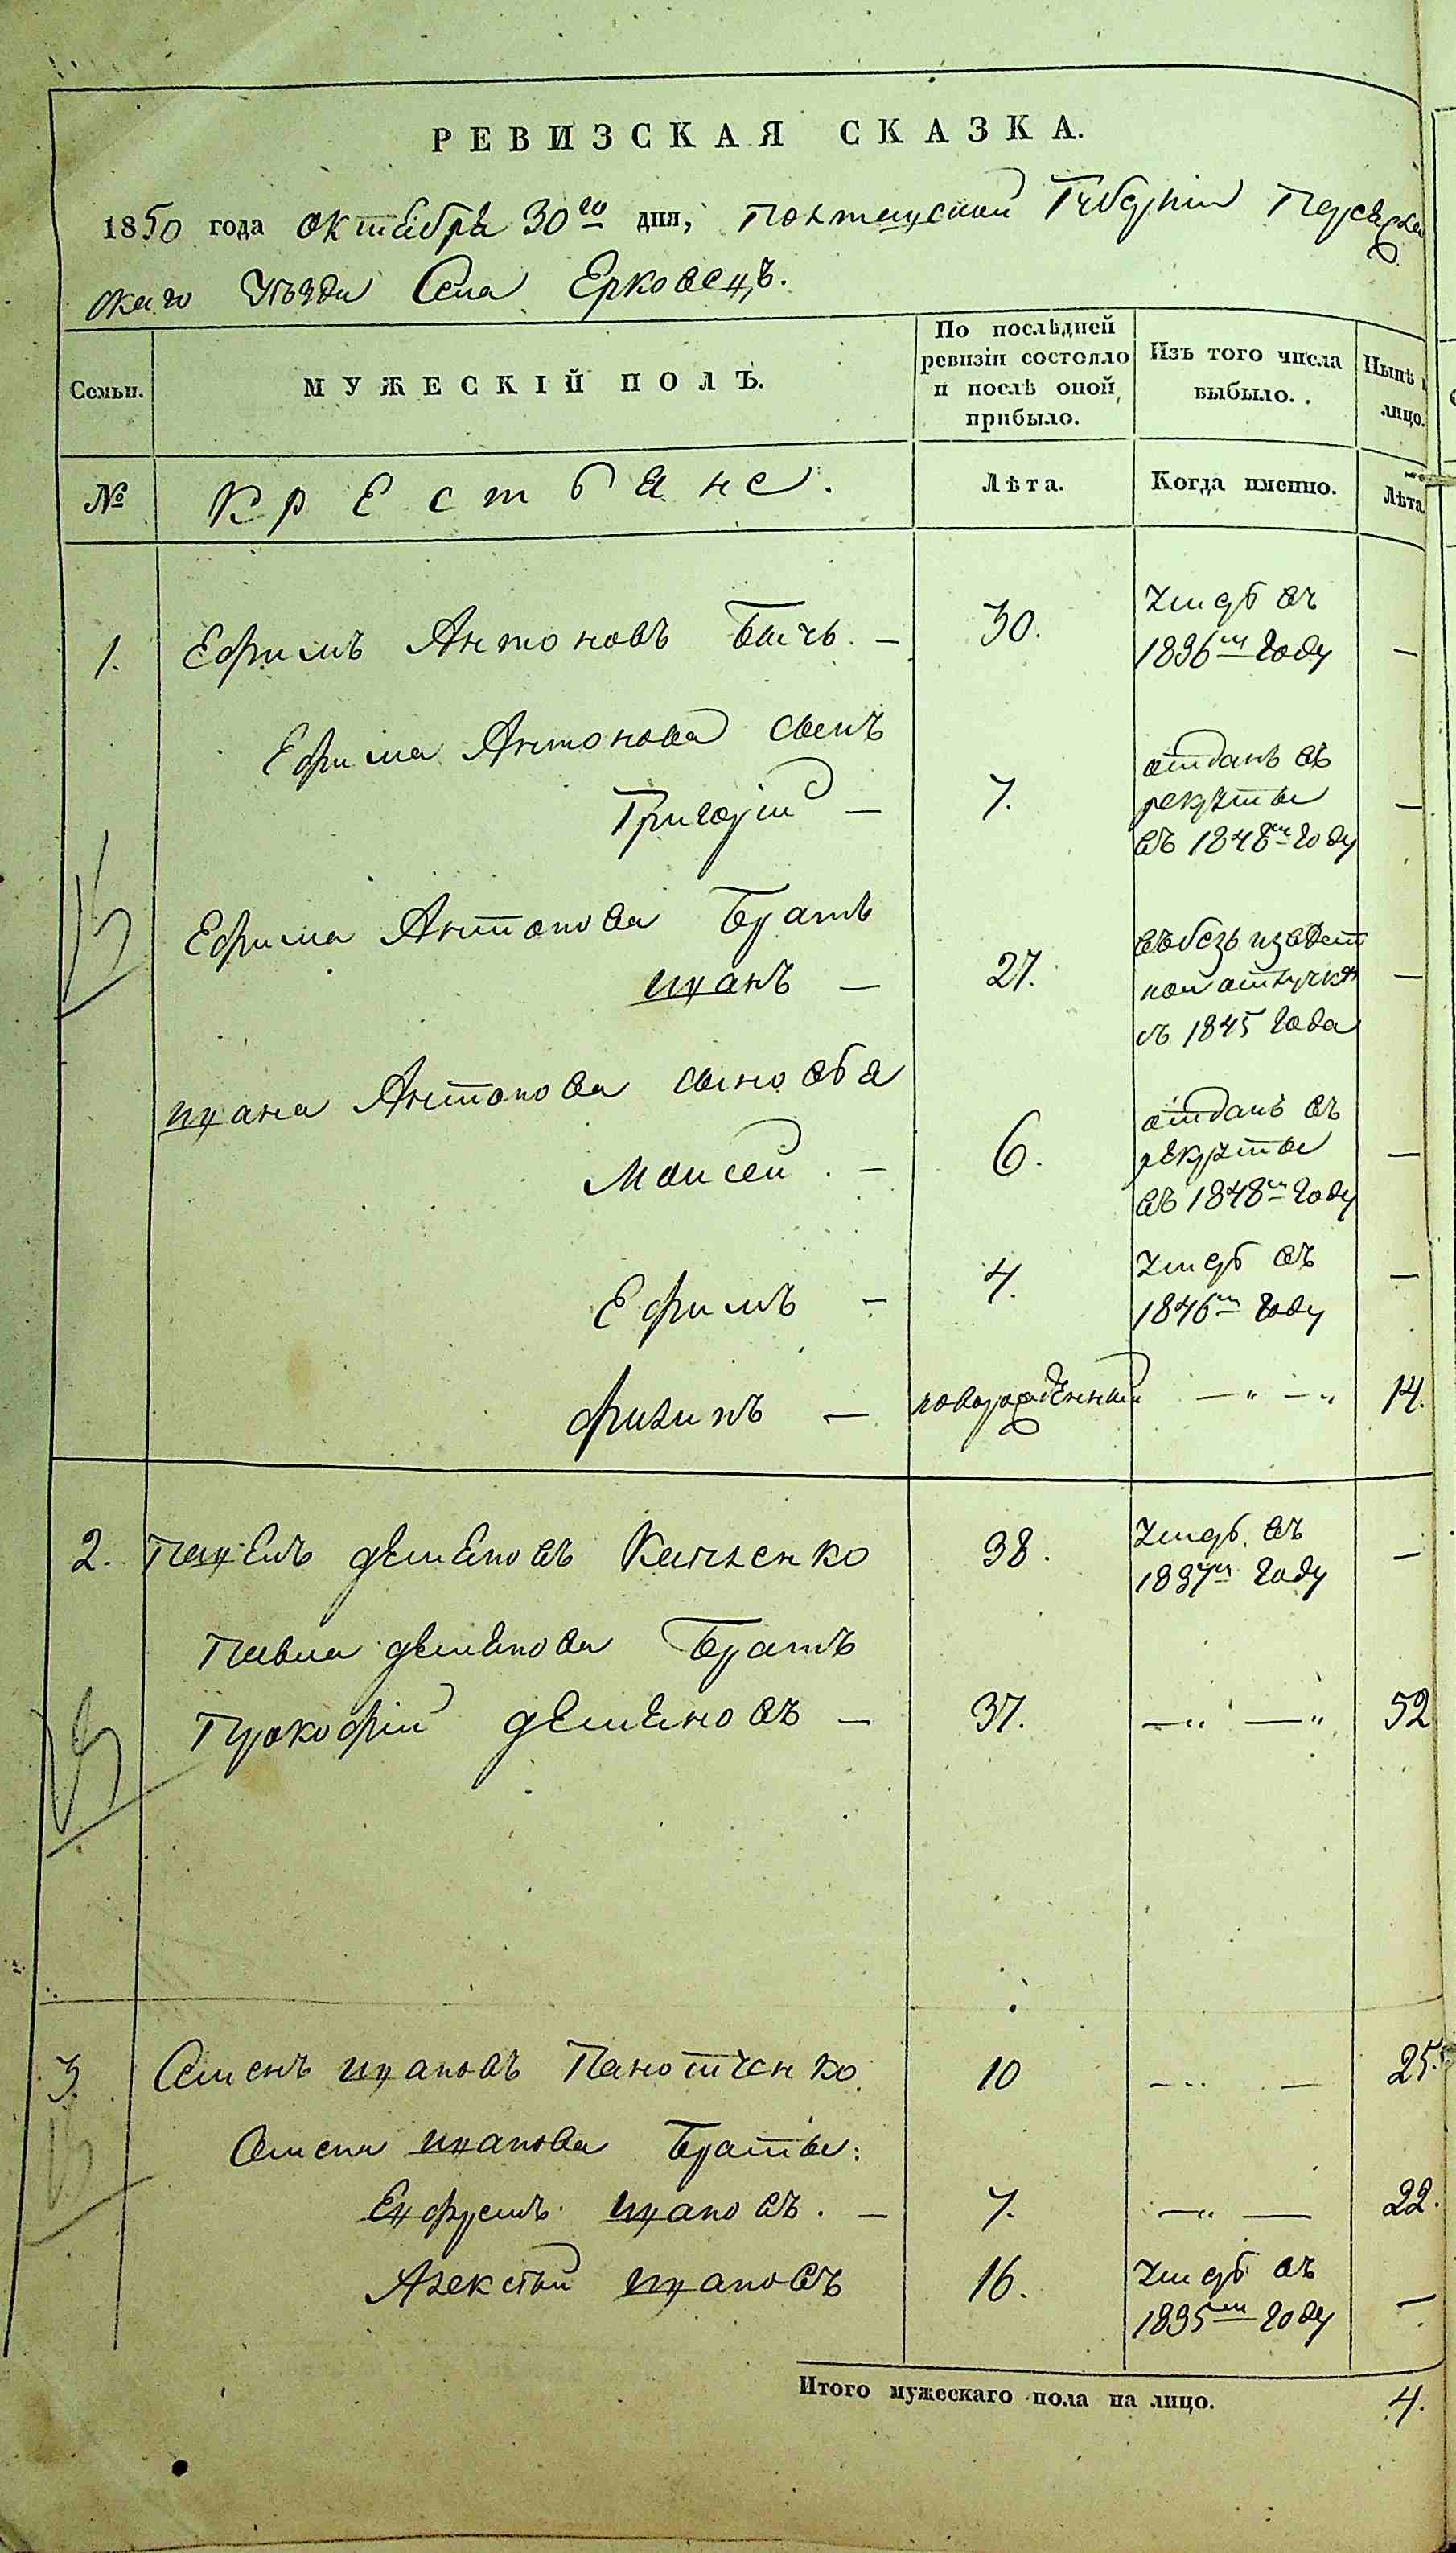 РЕВИЗСКАЯ СКАЗКА.
1850 года октября 30го дня, Полтавской Губерніи Переяслав
скаго Уѣзда Села Ерковецъ.
Семьи.
МУЖЕСКІЙ ПОЛЪ.
По послѣдней
ревизіи состояло
и послѣ оной
прибыло.
Изъ того числа
выбыло.
Нынѣ
лицо.
№
Крестьяне.
Лѣта.
Когда именно.
Лѣта
1. Ефимъ Антоновъ Бычъ. — 30. Умеръ въ
1836м году —
Ефима Антонова сынъ
Григорій — 7. отданъ въ
рекруты
въ 1848м году —
Ефима Антонова Братъ
Иванъ — 27. въ безъизвѣст
ной отлучкѣ
съ 1845 года —
Ивана Антонова сыновья
Моисей. — 6. отданъ въ
рекруты
въ 1848м году —
Ефимъ — 4. Умеръ въ
1846м году —
Филипъ — новорожденный — " — " 14.
2. Павелъ Деменовъ 38. Умеръ въ
1837м году —
Павла Деменова Братъ
Прокофій Деменовъ — 37. — " — " 52
3. Семенъ Ивановъ Панотченко 10 — " — 25.
Семена Иванова Братья:
Евфремъ Ивановъ. — 7. — " — 22.
Алексѣй Ивановъ 16. Умеръ въ
1835м году —
Итого мужескаго пола на лицо. 4.